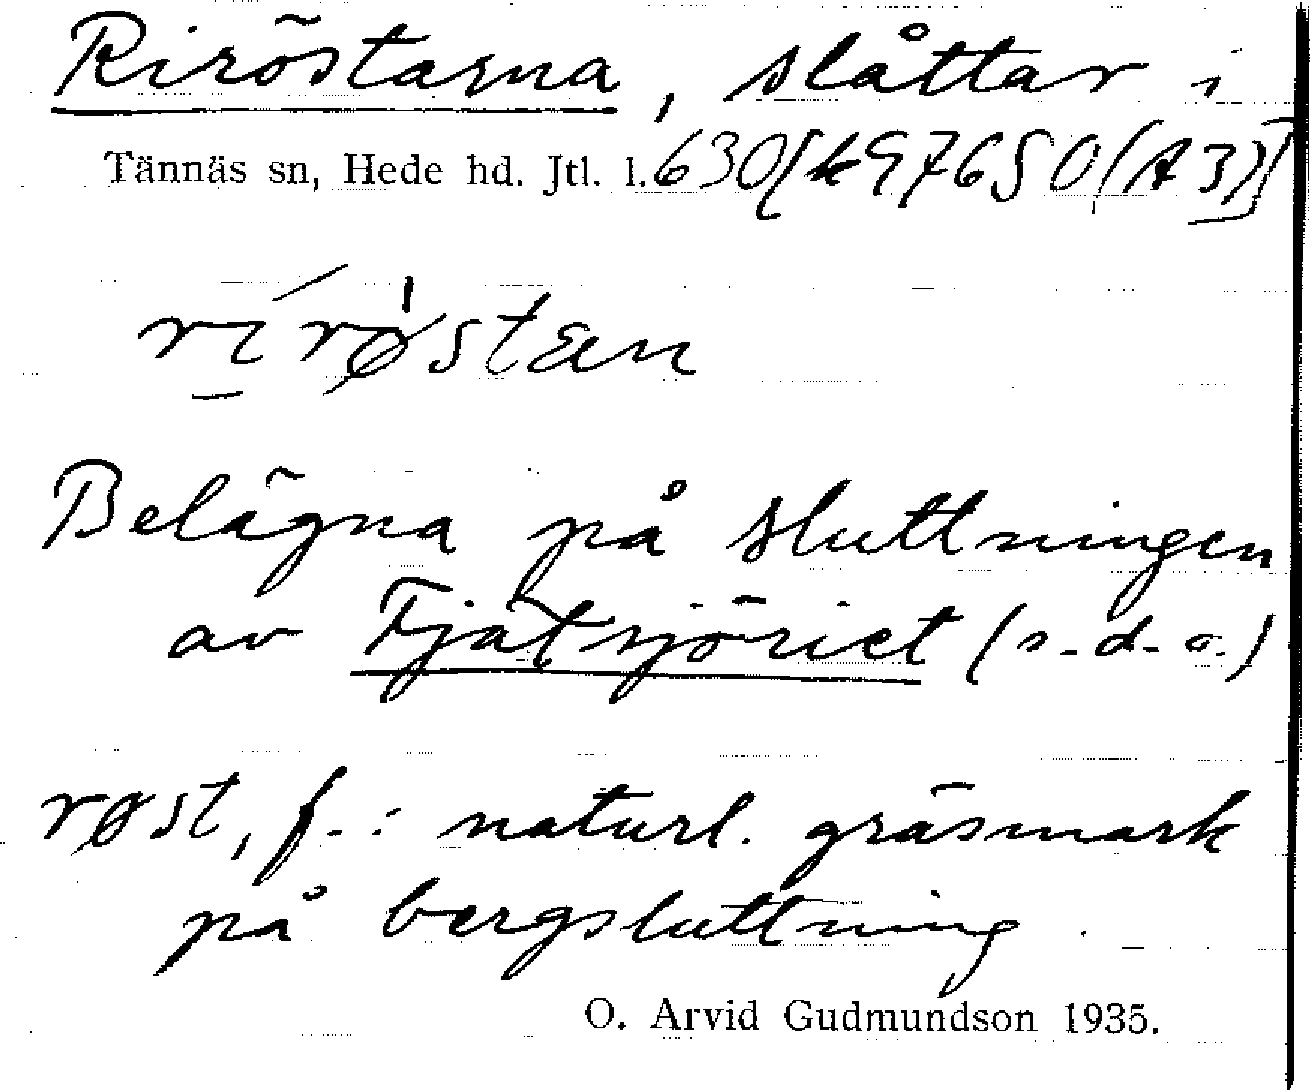 Riröstarna, slåttar i
Tännäs sn, Hede hd. Jtl. l. 630[k97650(A3)]
rírøstæn
Belägna på sluttningen
av Fjätsjöriet (s.d.o.)
røst, f.: naturl. gräsmark
på bergsluttning.
O. Arvid Gudmundson 1935.